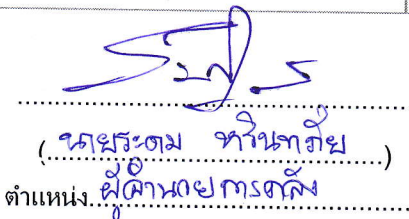 (นายระดม หรินทรภัย)
ตำแหน่ง ผู้อำนวยการคลัง